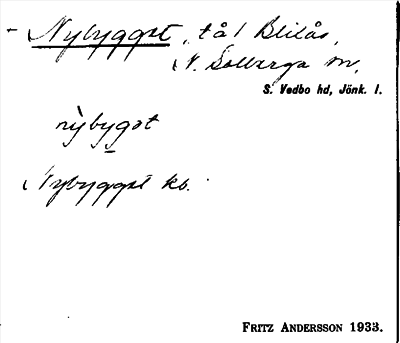 - Nybygget, t å 1 Blilås,
N. Solberga sn,
S. Vedbo hd, Jönk. l.
nỳbygət
Nybygget kb.
FRITZ ANDERSSON 1933.